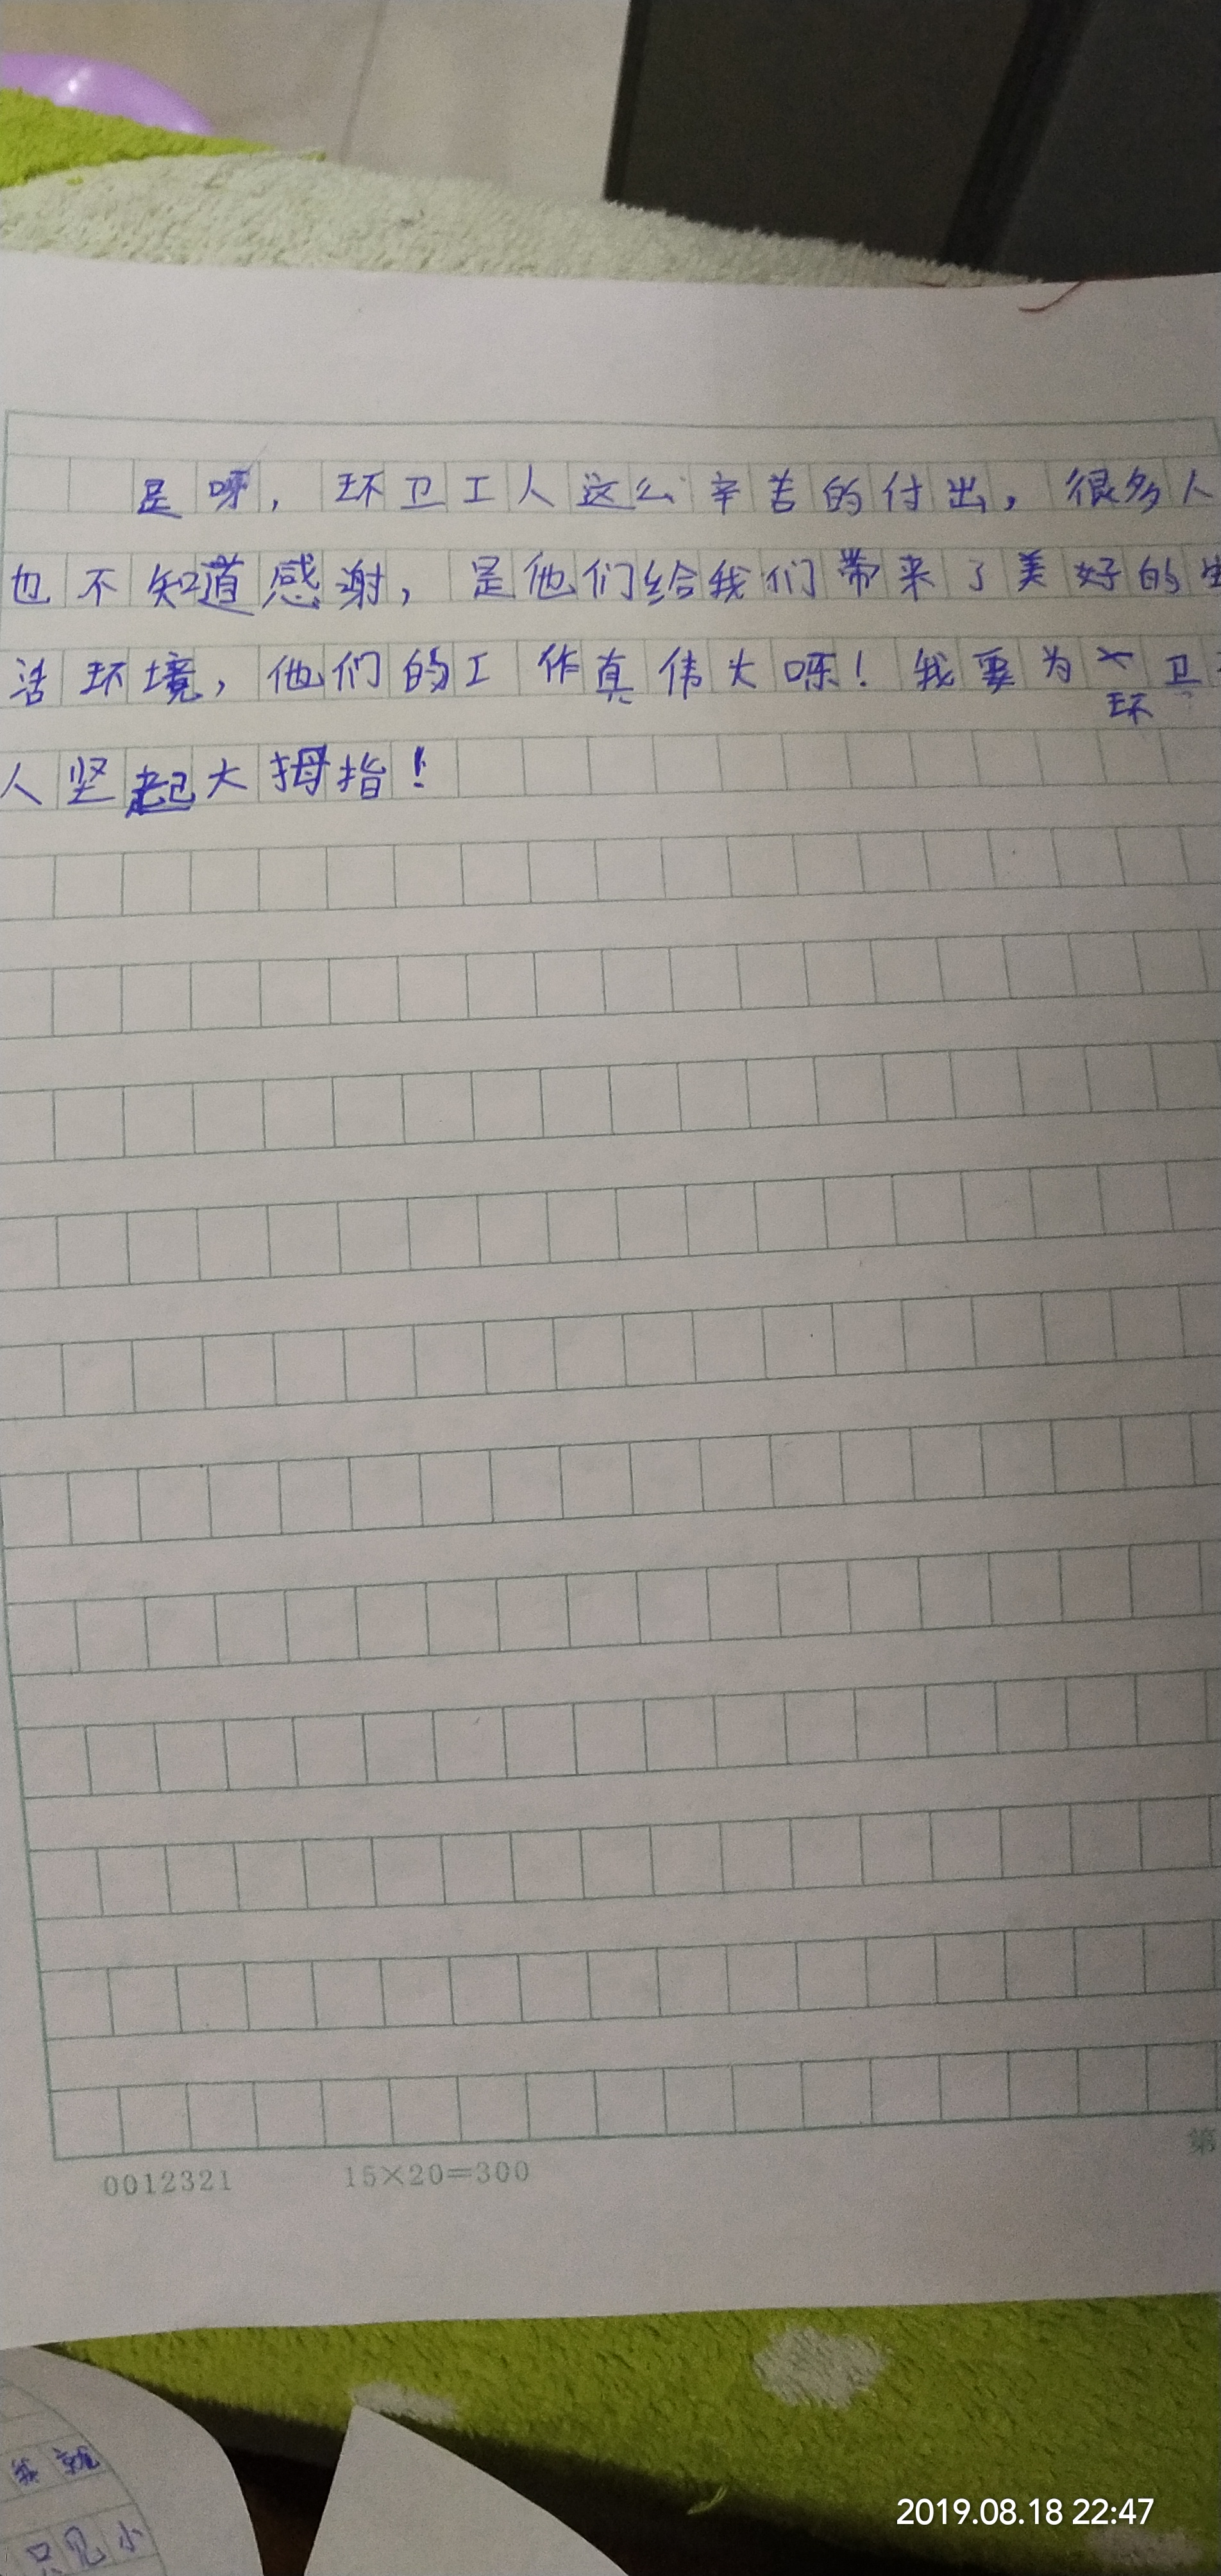 是呀，环卫工人这么辛苦的付出，很多人
也不知道感谢，是他们给我们带来了美好的生
活环境，他们的工作真伟大呀！我要为环卫
人坚起大拇指！
0012321 15×20=300 第
我就
只见小
2019.08.18 22:47